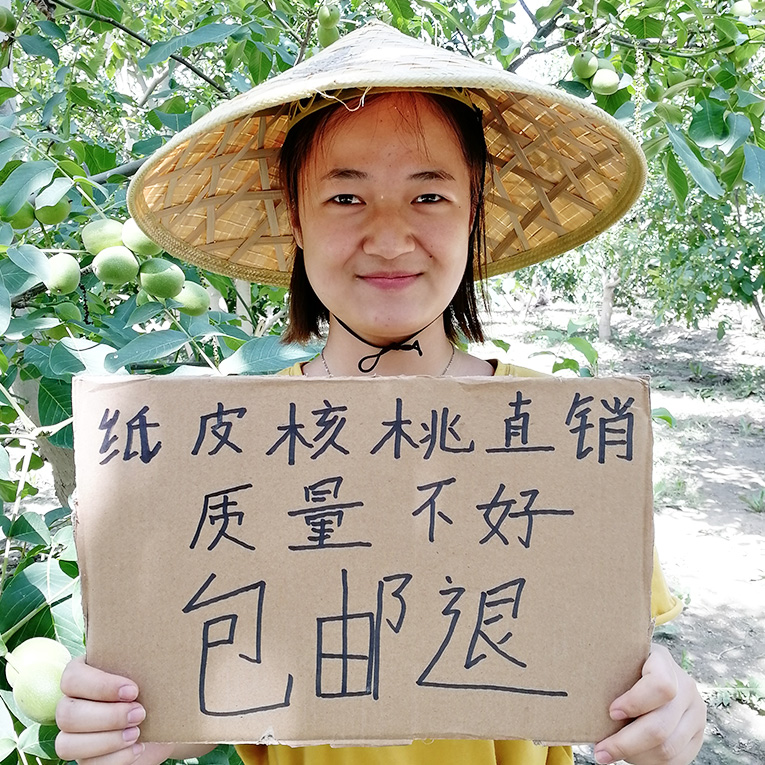 纸皮核桃直销
质量不好
包邮退